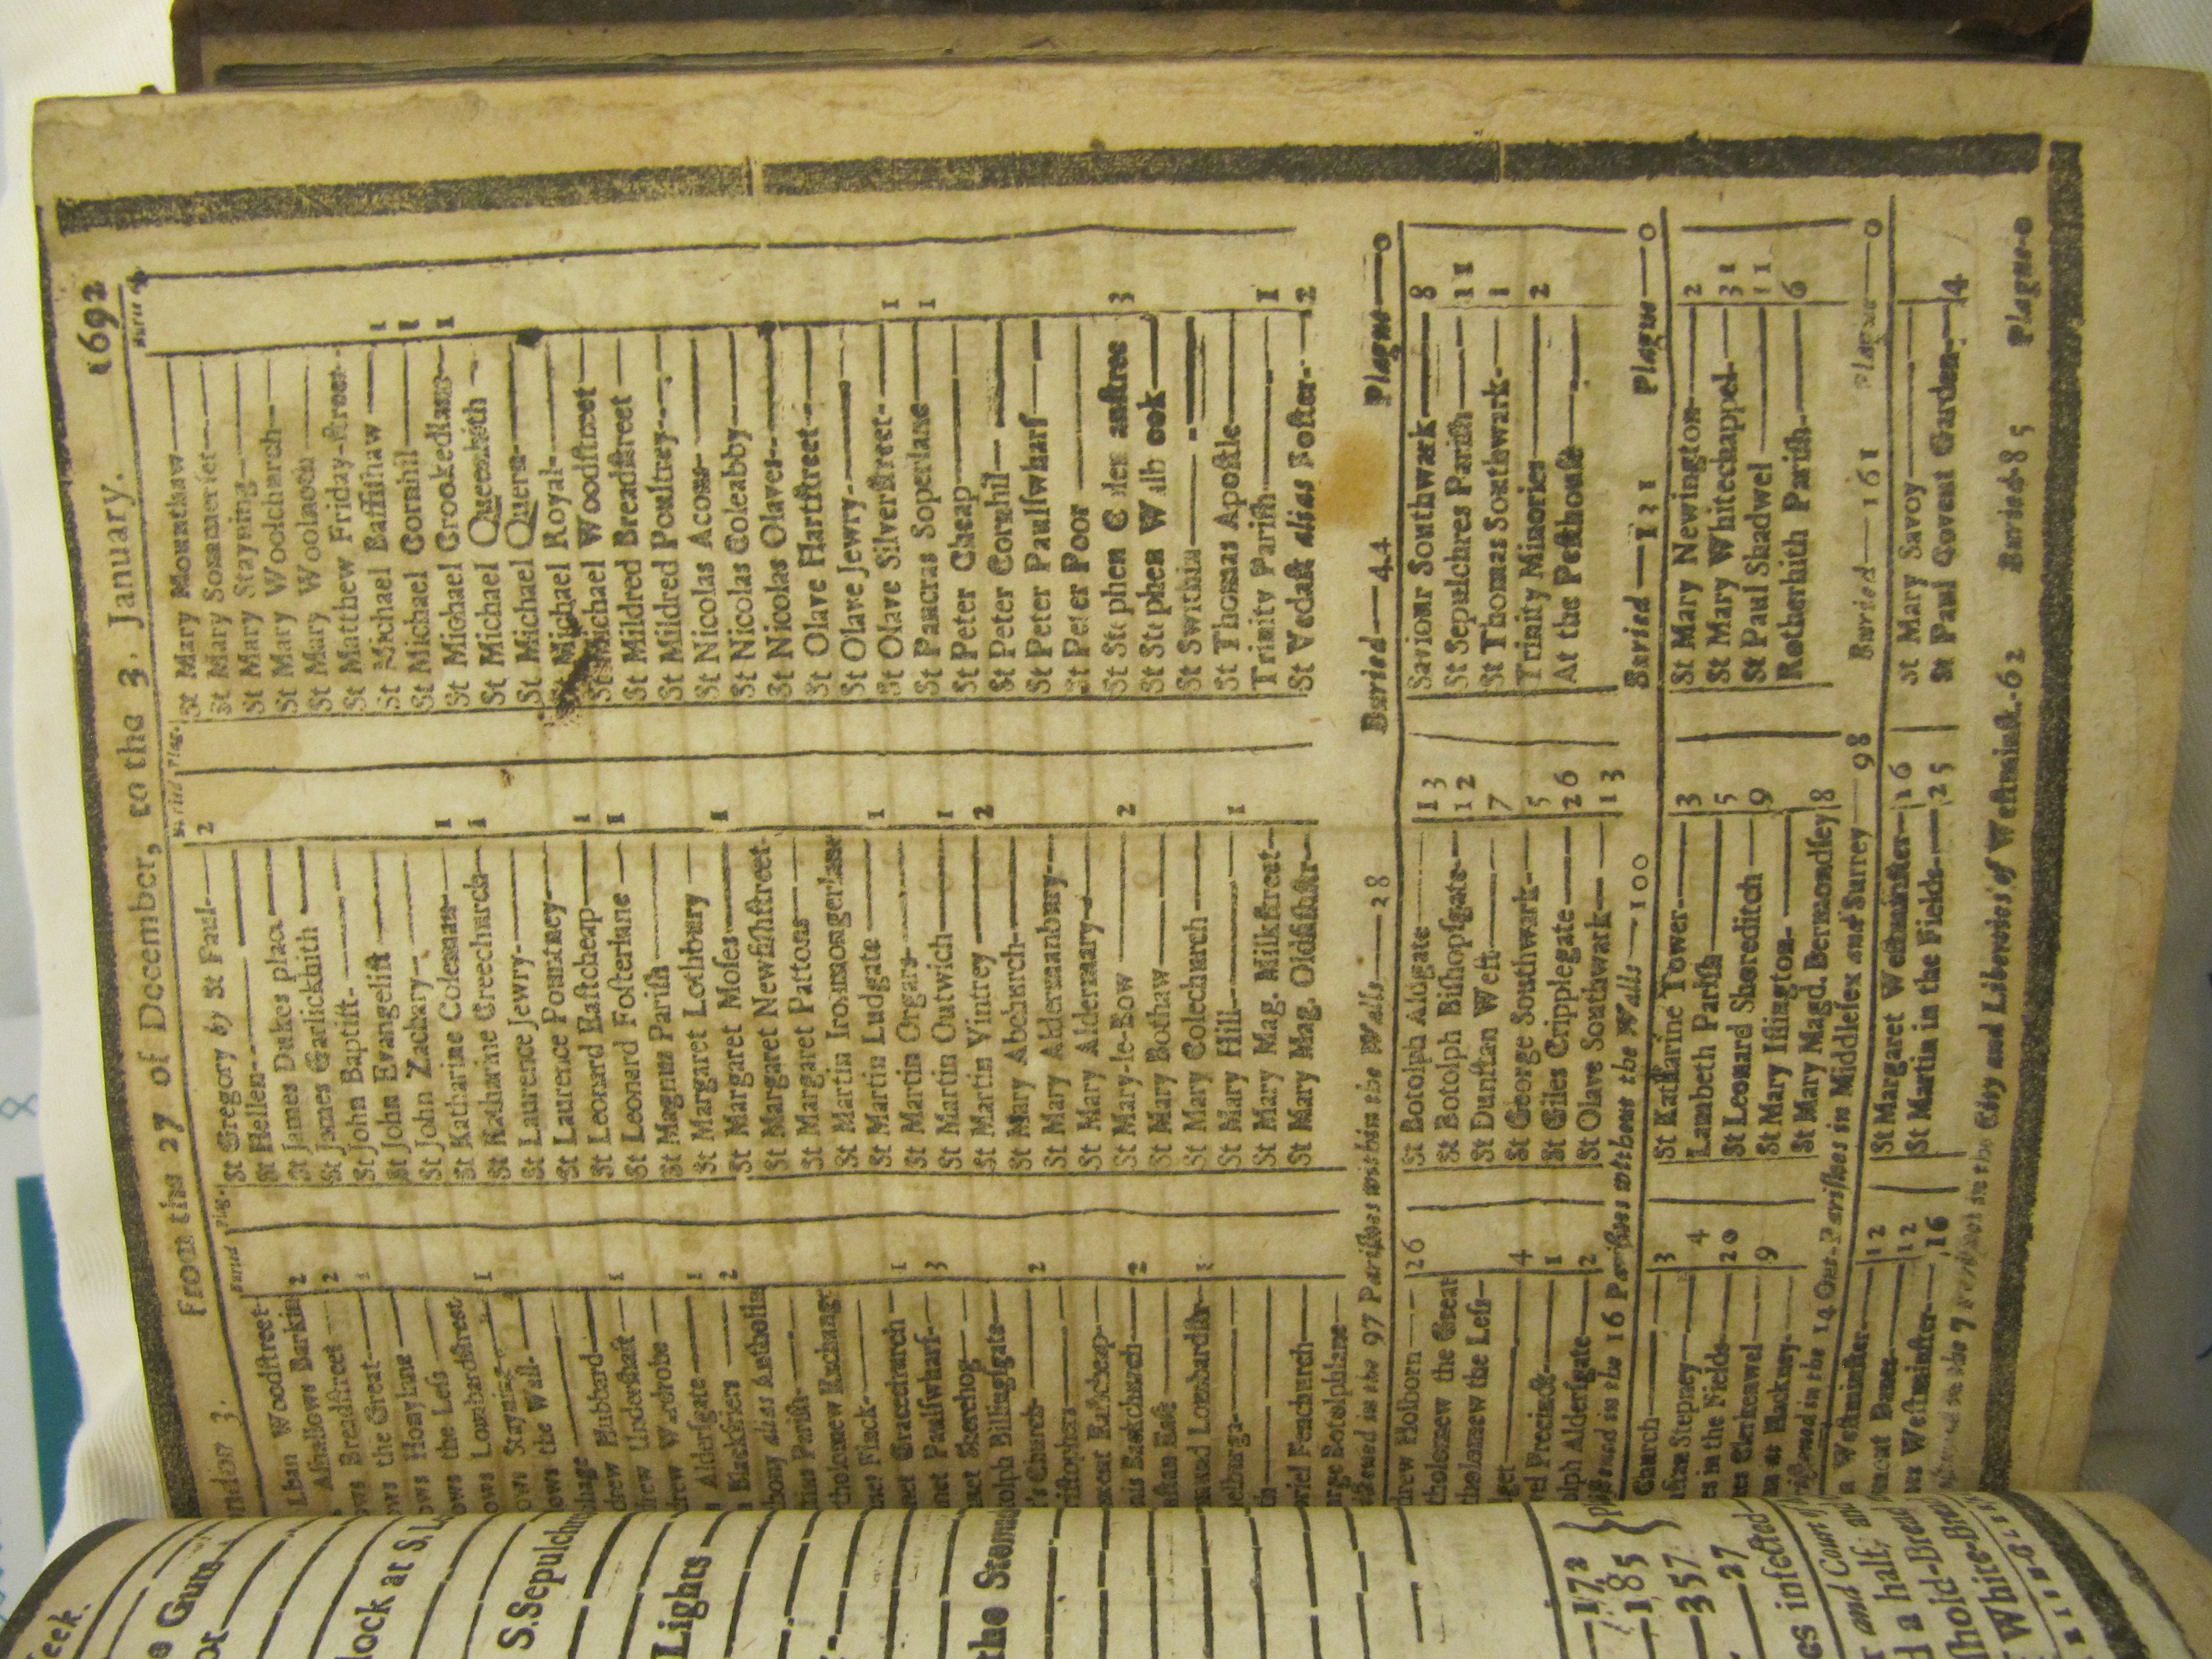 London 3. From the 27 of December, to the 3. January. 1692
Buried Plag.
Lban Woodſtreet
Alhallows Barkin 2
ows Breadſtreet 2
ows the Great 1
ows Honylane
ows the Leſs
ows Lombardſtreet 1
ows Stayning
ows the Wall
phage
drew Hubbard
drew Underſhaft 1
drew Wardrobe
Alderſgate 1
Blackfriers 2
thony alias Antholin
tins Pariſh
tholomew Exchange
net Finck
net Gracechurch 1
net Paulſwharf 3
net Sherehog
tolph Billingſgate
's Church 2
riſtophers
ment Eaſtcheap
nis Backchurch 2
nſtan Eaſt
mund Lombardſtr 1
elburga
th
briel Fenchurch
orge Botolphlane
Buried Plag.
St Gregory by St Paul 2
St Hellen
St James Dukes place
St James Garlickhith
St John Baptiſt
St John Evangeliſt
St John Zachary
St Katharine Coleman 1
St Katharine Creechurch 1
St Laurence Jewry
St Laurence Pountney
St Leonard Eaſtcheap 1
St Leonard Foſterlane 1
St Magnus Pariſh
St Margaret Lothbury
St Margaret Moſes 1
St Margaret Newfiſhſtreet
St Margaret Pattons
St Martin Ironmongerlane
St Martin Ludgate 1
St Martin Orgars
St Martin Outwich 1
St Martin Vintrey 2
St Mary Abchurch
St Mary Aldermanbury
St Mary Aldermary
St Mary-le-Bow 2
St Mary Bothaw
St Mary Colechurch
St Mary Hill 1
St Mary Mag. Milkſtreet
St Mary Mag. Oldfiſhſtr
St Mary Mounthaw
St Mary Sommerſet
St Mary Stayning
St Mary Woolchurch
St Mary Woolnoth
St Matthew Friday-ſtreet
St Michael Baſſiſhaw 1
St Michael Cornhil 1
St Michael Crookedlane 1
St Michael Queenhith
St Michael Quern
St Michael Royal
St Michael Woodſtreet
St Mildred Breadſtreet
St Mildred Poultrey
St Nicolas Acons
St Nicolas Coleabby
St Nicolas Olaves
St Olave Hartſtreet
St Olave Jewry
St Olave Silverſtreet 1
St Pancras Soperlane 1
St Peter Cheap
St Peter Cornhil
St Peter Paulſwharf
St Peter Poor
St Stephen Colemanſtree 3
St Stephen Walbrook
St Swithin
St Thomas Apoſtle
Trinity Pariſh 1
St Vedaſt alias Foſter 2
iſtened in the 97 Pariſhes within the Walls 28 Buried 44 Plague 0
drew Holborn 26
tholomew the Great
tholomew the Leſs
get 4
el Precinct 1
olph Alderſgate 2
St Botolph Aldgate 13
St Botolph Biſhopſgate 12
St Dunſtan Weſt 7
St George Southwark 5
St Giles Cripplegate 26
St Olave Southwark 13
Saviour Southwark 8
St Sepulchres Pariſh 11
St Thomas Southwark 1
Trinity Minories
At the Peſthouſe
2
iſtened in the 16 Pariſhes without the Walls 100 Buried 131 Plague 0
Church 3
nſtan Stepney 4
es in the Fields 20
es Clerkenwel 9
n at Hackney
St Katharine Tower 3
Lambeth Pariſh 5
St Leonard Shoreditch 9
St Mary Iſlington
St Mary Magd. Bermondſey 8
St Mary Newington 2
St Mary Whitechappel 31
St Paul Shadwel 11
Rotherhith Pariſh 6
iſtened in the 14 Out-Pariſhes in Middleſex and Surrey 98 Buried 161 Plague 0
Weſtminſter 12
ment Danes 12
es Weſtminſter 16
St Margaret Weſtminſter 16
St Martin in the Fields 25
St Mary Savoy
St Paul Covent Garden 4
in the 7 Pariſhes in the City and Liberties of Weſtminſt. 62 Buried 85 Plague 0
eek.
e Gun
or
lock at S. L
S. Sepulchr
Lights
the Stom
172
185
357
27
es infected
r and Court of
d a half,
ſhold-Bread
White-Bre